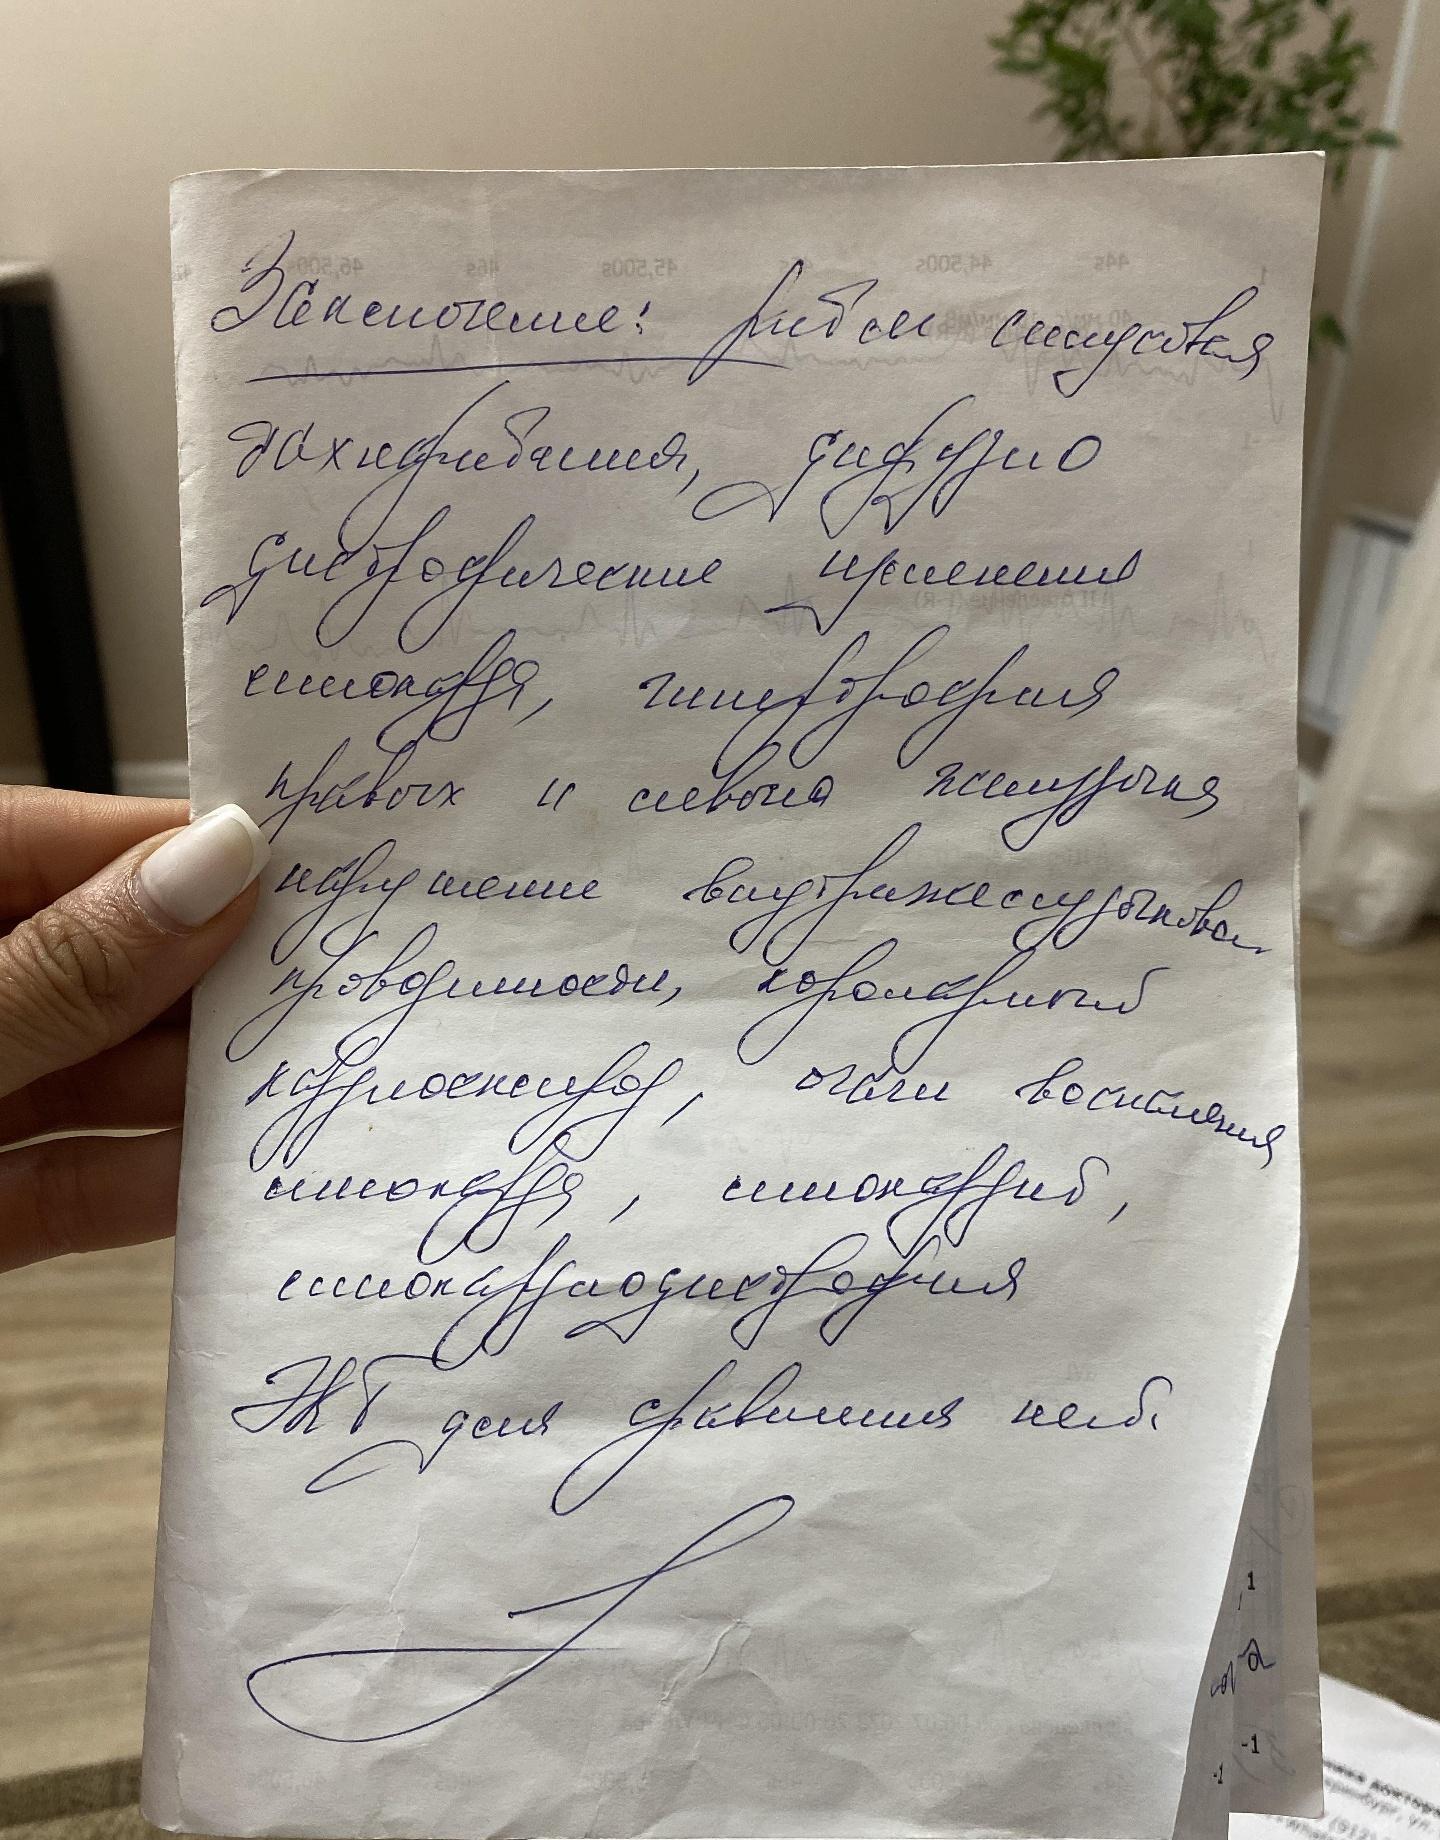 Заключение: ритм синусовая
тахикардия, диффузно
дистрофические изменения
миокарда, гипертрофия
правых и левого желудочка
нарушение внутрижелудочковой
проводимости, коронарный
кардиосклероз, очаги воспаления
миокарда, миокардит,
миокардиодистрофия
ЭКГ для сравнения нет.
44s 44,500s 45,500s 46s 46,500s
1
-1
-1